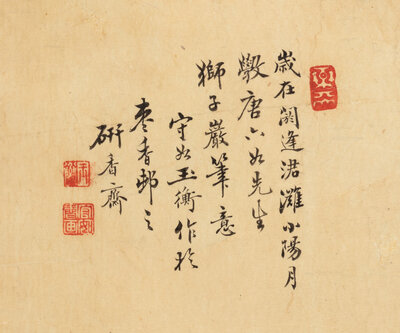 歲在閼逢涒灘小陽月
戲唐六如先生
獅子巖筆意
守如玉衡作於
棗香邨之
研香齋